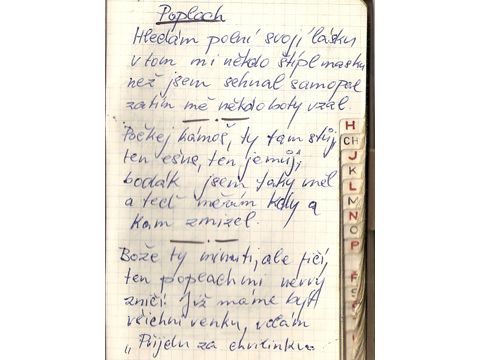 Poplach
Hledám polní svojí lásku
v tom mi někdo štípl masku
než jsem sehnal samopal
zatím mě někdo boty vzal.
Počkej kámoš, ty tam stůj,
ten esus, ten je můj,
bodák jsem taky měl
a teď nevím kdy a
kam zmizel.
Bože ty minuty, ale fičí,
ten poplach mi nervy
zničí. Již máme být
všichni venku, volám
„Přijdu za chvilinku"
H
CH
J
K
L
M
N
O
P
Ř
S